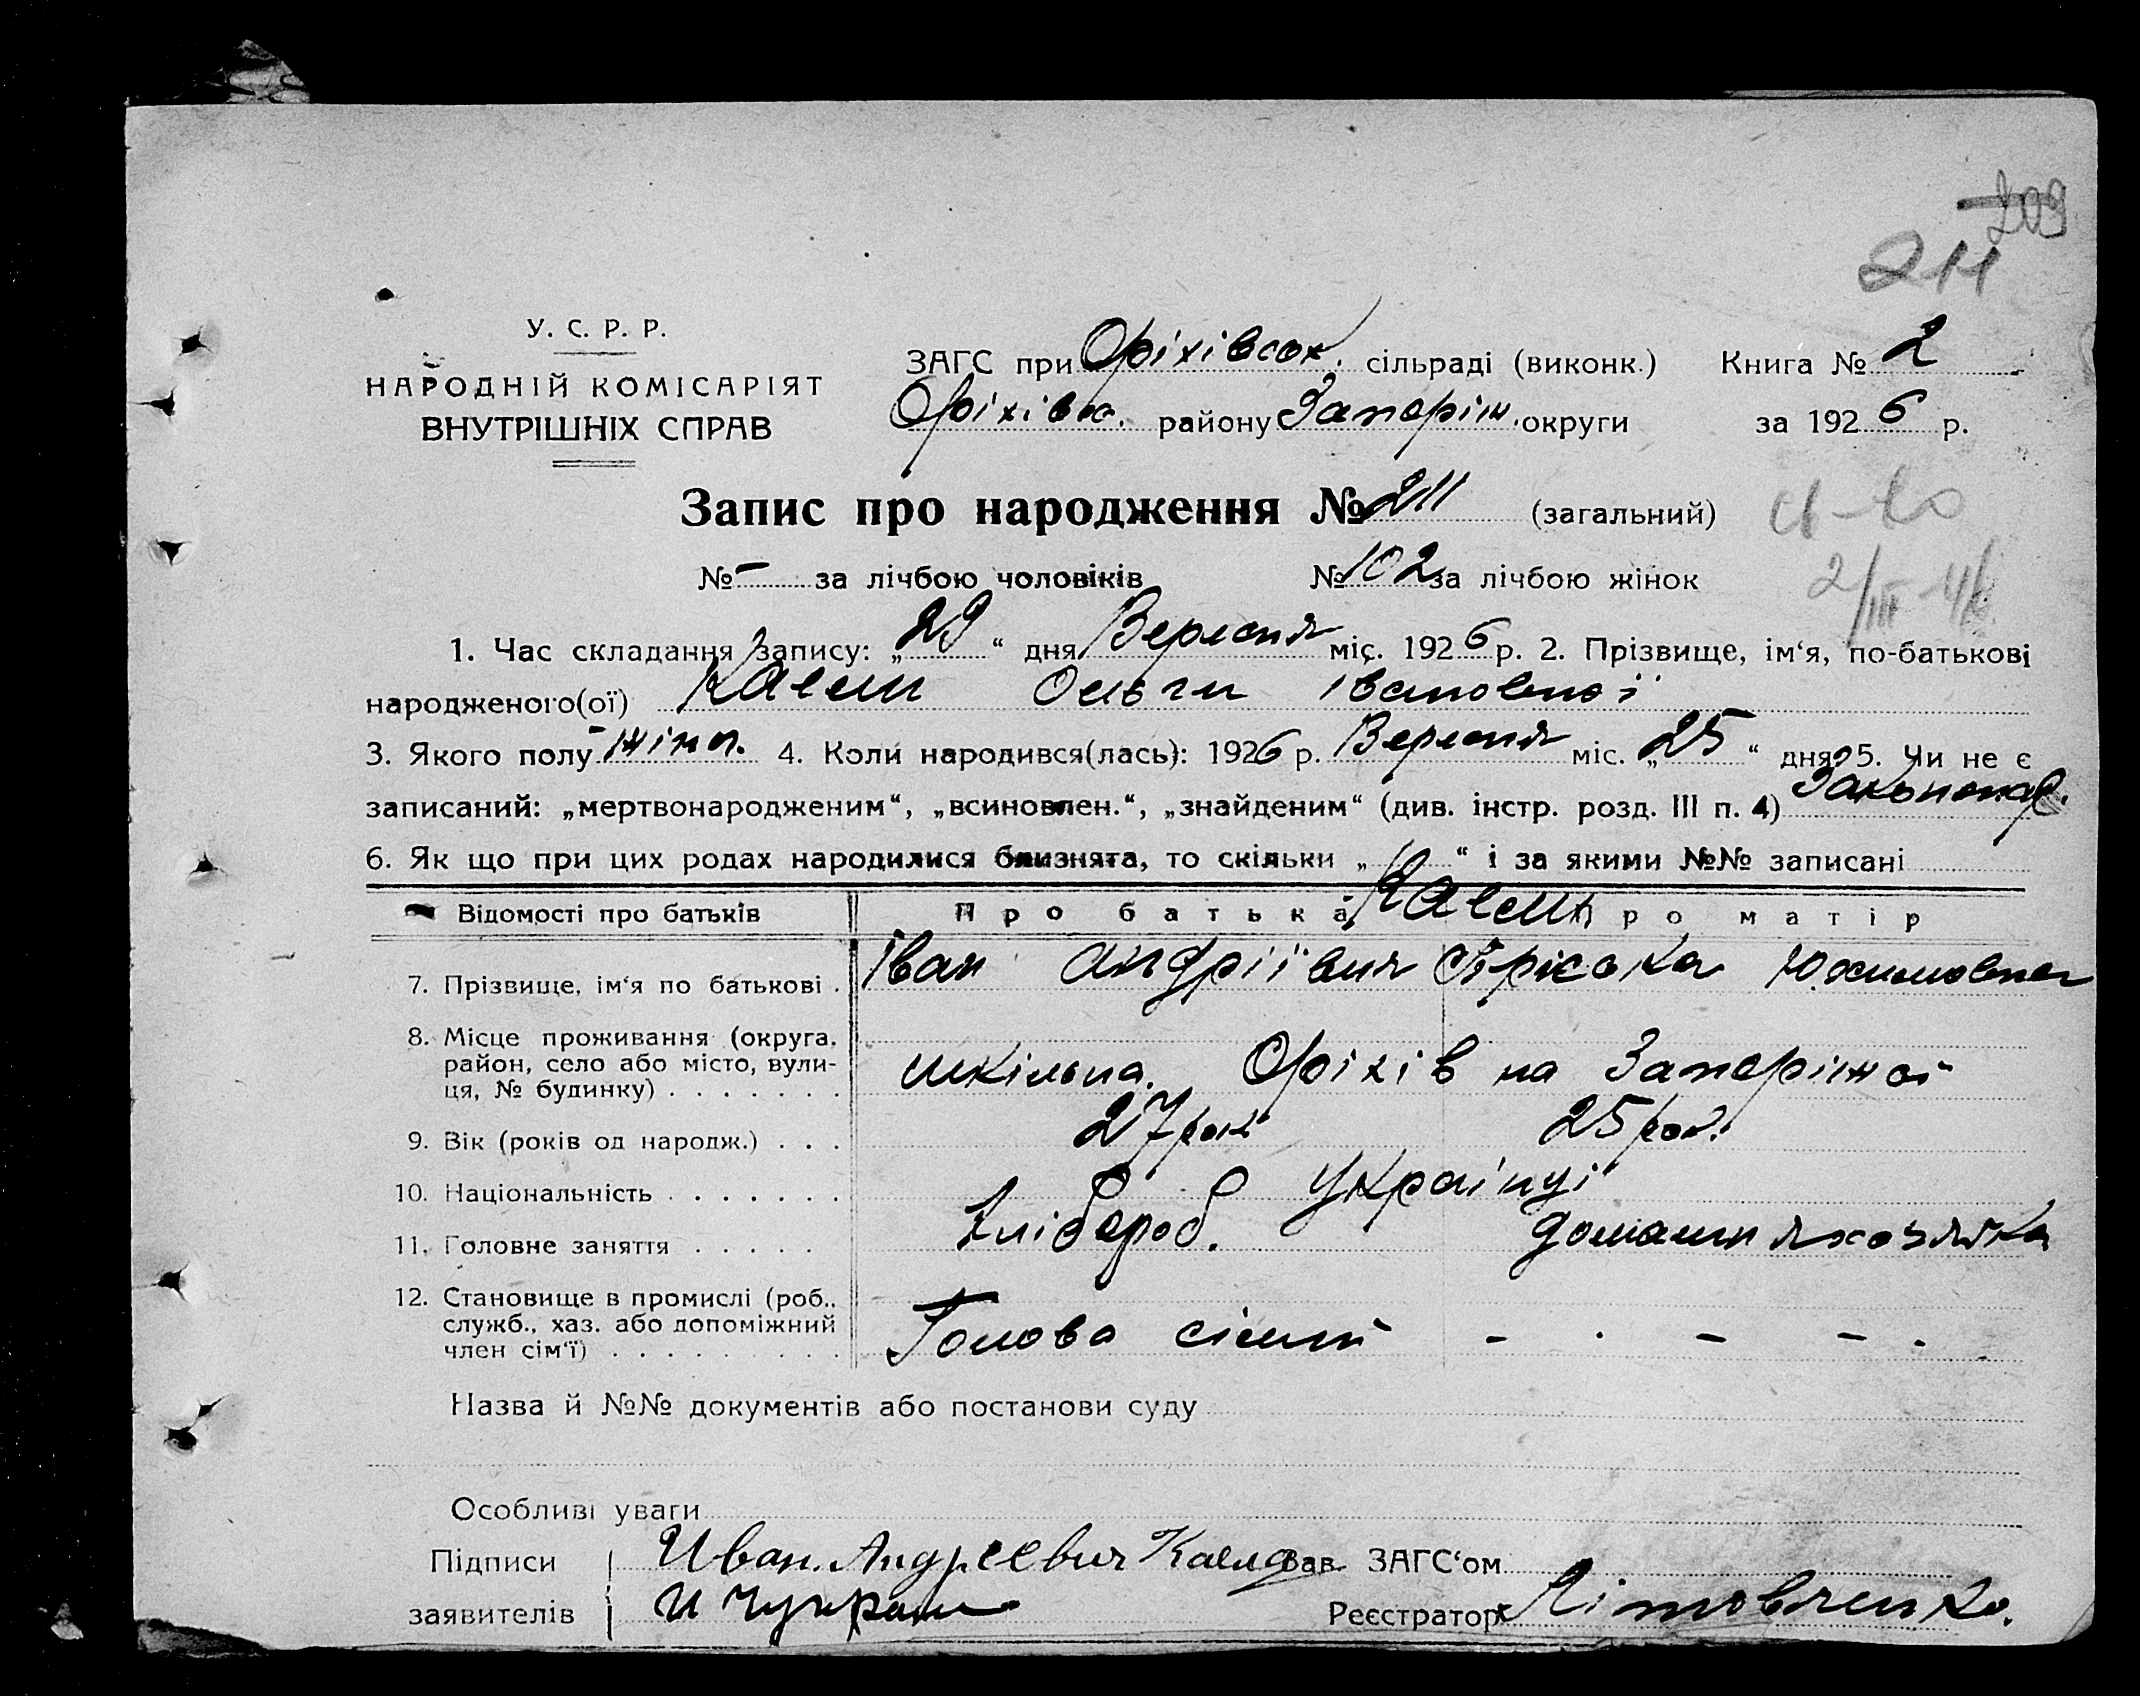 209
211
У. С. Р. Р.
НАРОДНІЙ КОМІСАРІЯТ
ВНУТРІШНІХ СПРАВ
ЗАГС при Оріхівськ. сільраді (виконк.) Книга № 2
Оріхівс. району Запоріж. округи за 1926 р.
Запис про народження № 211 (загальний)
№ – за лічбою чоловіків № 102 за лічбою жінок
1. Час складання запису: „29“ дня Вересня міс. 1926 р. 2. Прізвище, ім‘я, по-батькові
народженого(ої) Ольги Івановної
3. Якого полу жіноч. 4. Коли народився(лась): 1926 р. Вересня міс. „25“ дня 5. Чи не є
записаний: „мертвонародженим“, „всиновлен.“, „знайденим“ (див. інстр. розд. III п. 4)
6. Як що при цих родах народилися близнята, то скільки „ “ і за якими №№ записані
Відомості про батьків Про батька Про матір
7. Прізвище, ім‘я по батькові . Іван Андріївич
8. Місце проживання (округа, район, село або місто, вулиця, № будинку) . . . . . . . шкільна. Оріхів на Запоріжої
9. Вік (років од народж.) . . . 27 рок 25 рок.
10. Національність . . . . . . . Українці
11. Головне заняття . . . . . Хлібороб. домашня хозяйка
12. Становище в промислі (роб., служб., хаз. або допоміжний член сім‘ї) . . . . . . . . . Голова сімї – . – – .
Назва й №№ документів або постанови суду
Особливі уваги
Підписи Иван Андреевич Зав. ЗАГС‘ом
заявителів Реєстратор Літовченко.